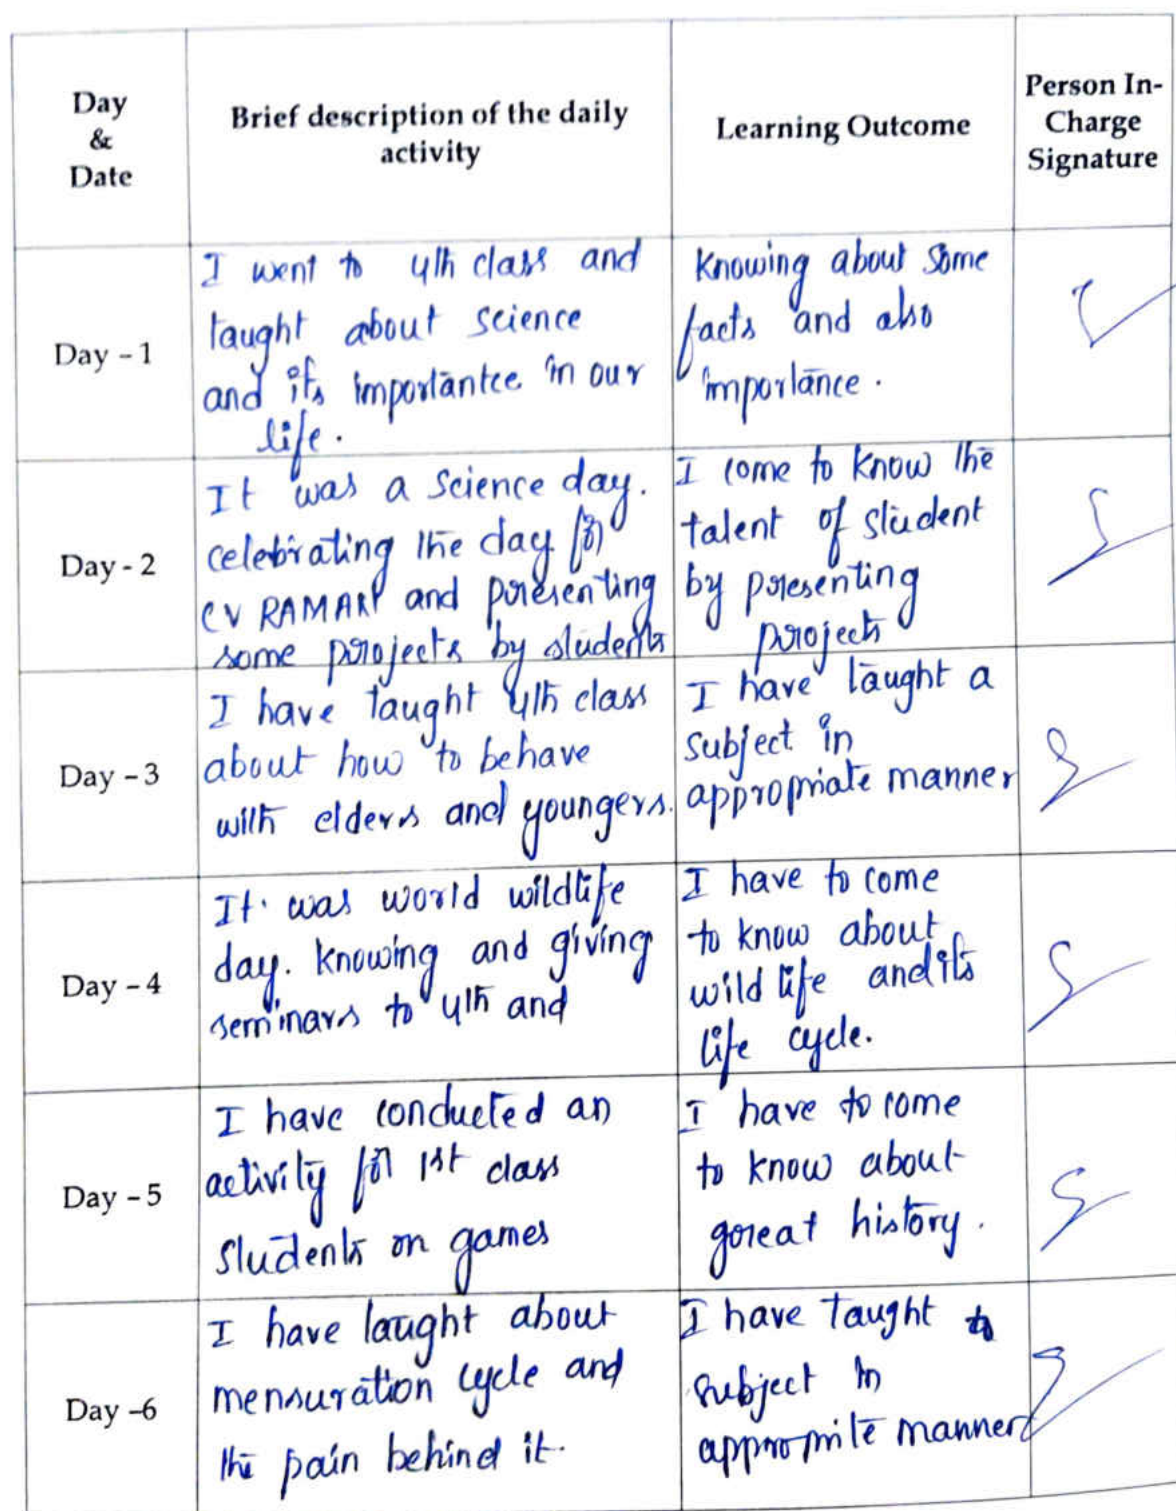 Day
&
Date
Brief description of the daily
activity
Learning Outcome
Person In-
Charge
Signature
Day - 1
I went to 4th class and
taught about science
and its importantce in our
life.
Knowing about some
facts and also
importance.
Day - 2
It was a science day.
celebrating the day for
CV RAMAN and presenting
some projects by students
I come to know the
talent of student
by presenting
projects
Day - 3
I have taught 4th class
about how to behave
with elders and youngers.
I have taught a
subject in
appropriate manner
Day - 4
It was world wildlife
day. knowing and giving
seminars to 4th and
I have to come
to know about
wild life and its
life cycle.
Day - 5
I have conducted an
activity for 1st class
students on games
I have to come
to know about
great history.
Day -6
I have taught about
mensuration cycle and
the pain behind it.
I have taught
subject in
appropmite manner